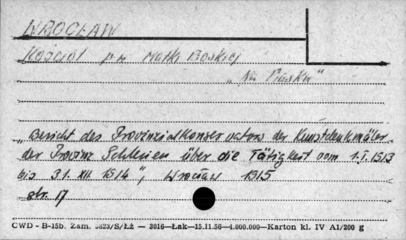 WROCŁAW
Kościół p.w. Matki Boskiej
„Na Piasku"
„Bericht des Provinzialkonservators der Kunstdenkmäler
der Provinz Schlesien über die Tätigkeit vom 1.I.1913
bis 31. XII 1914", Wrocław 1915
str. 17
CWD - B-15b. Zam. 5823/S/ŁŻ — 2016—Łak—15.11.56—4.000.000—Karton kl. IV A1/200 g